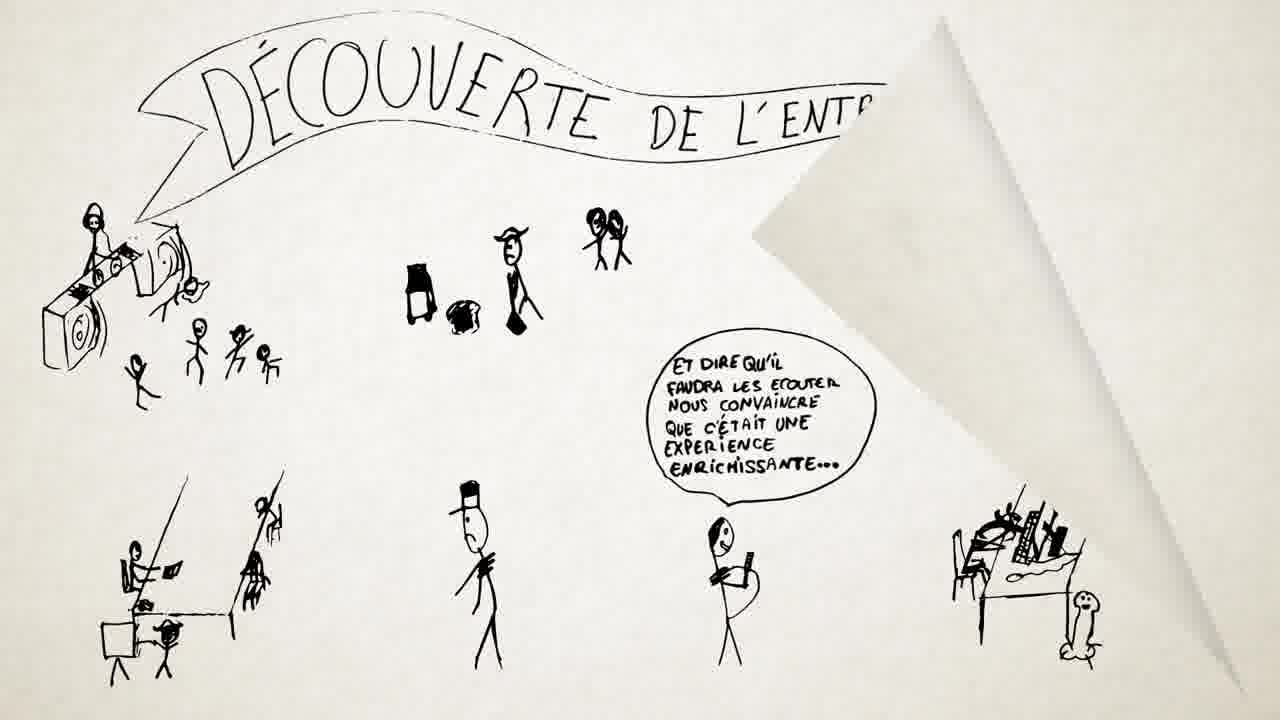 DÉCOUVERTE DE L'ENT
ET DIRE QU'IL
FAUDRA LES ECOUTER
NOUS CONVAINCRE
QUE C'ÉTAIT UNE
EXPERIENCE
ENRICHISSANTE...